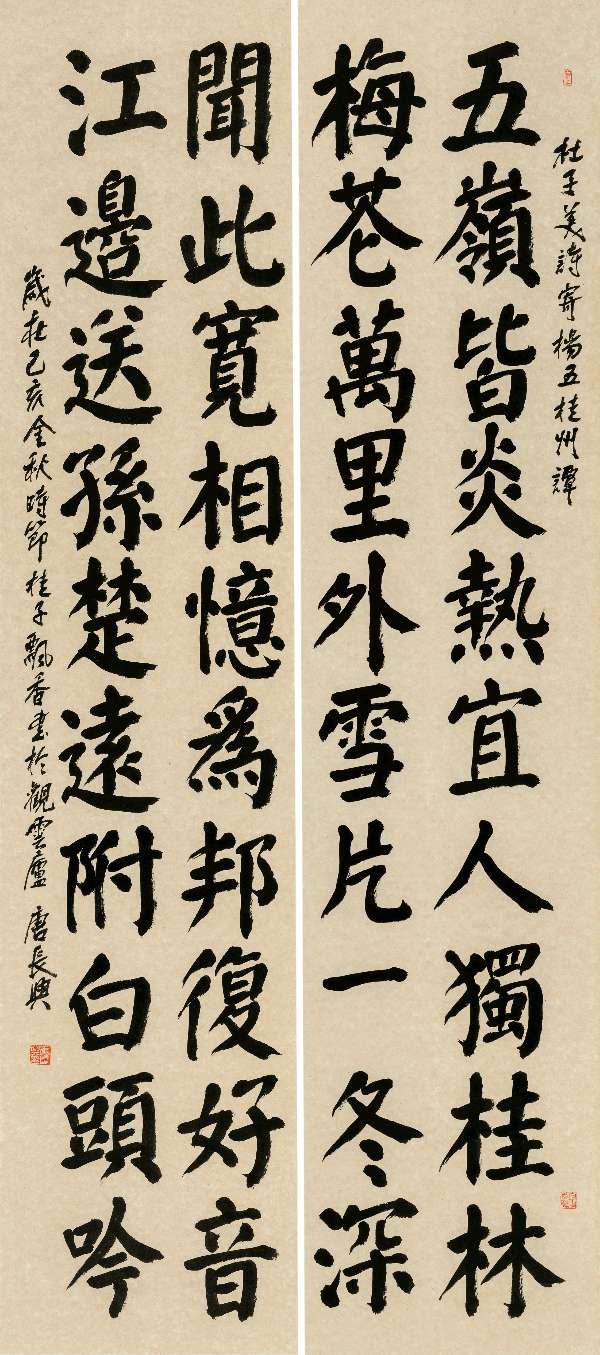 杜子美詩寄楊五桂州譚
五嶺皆炎熱宜人獨桂林
梅花萬里外雪片一冬深
聞此寬相憶爲邦復好音
江邊送孫楚遠附白頭吟
歲在己亥金秋時節桂子飄香書於觀雲廬 唐長興